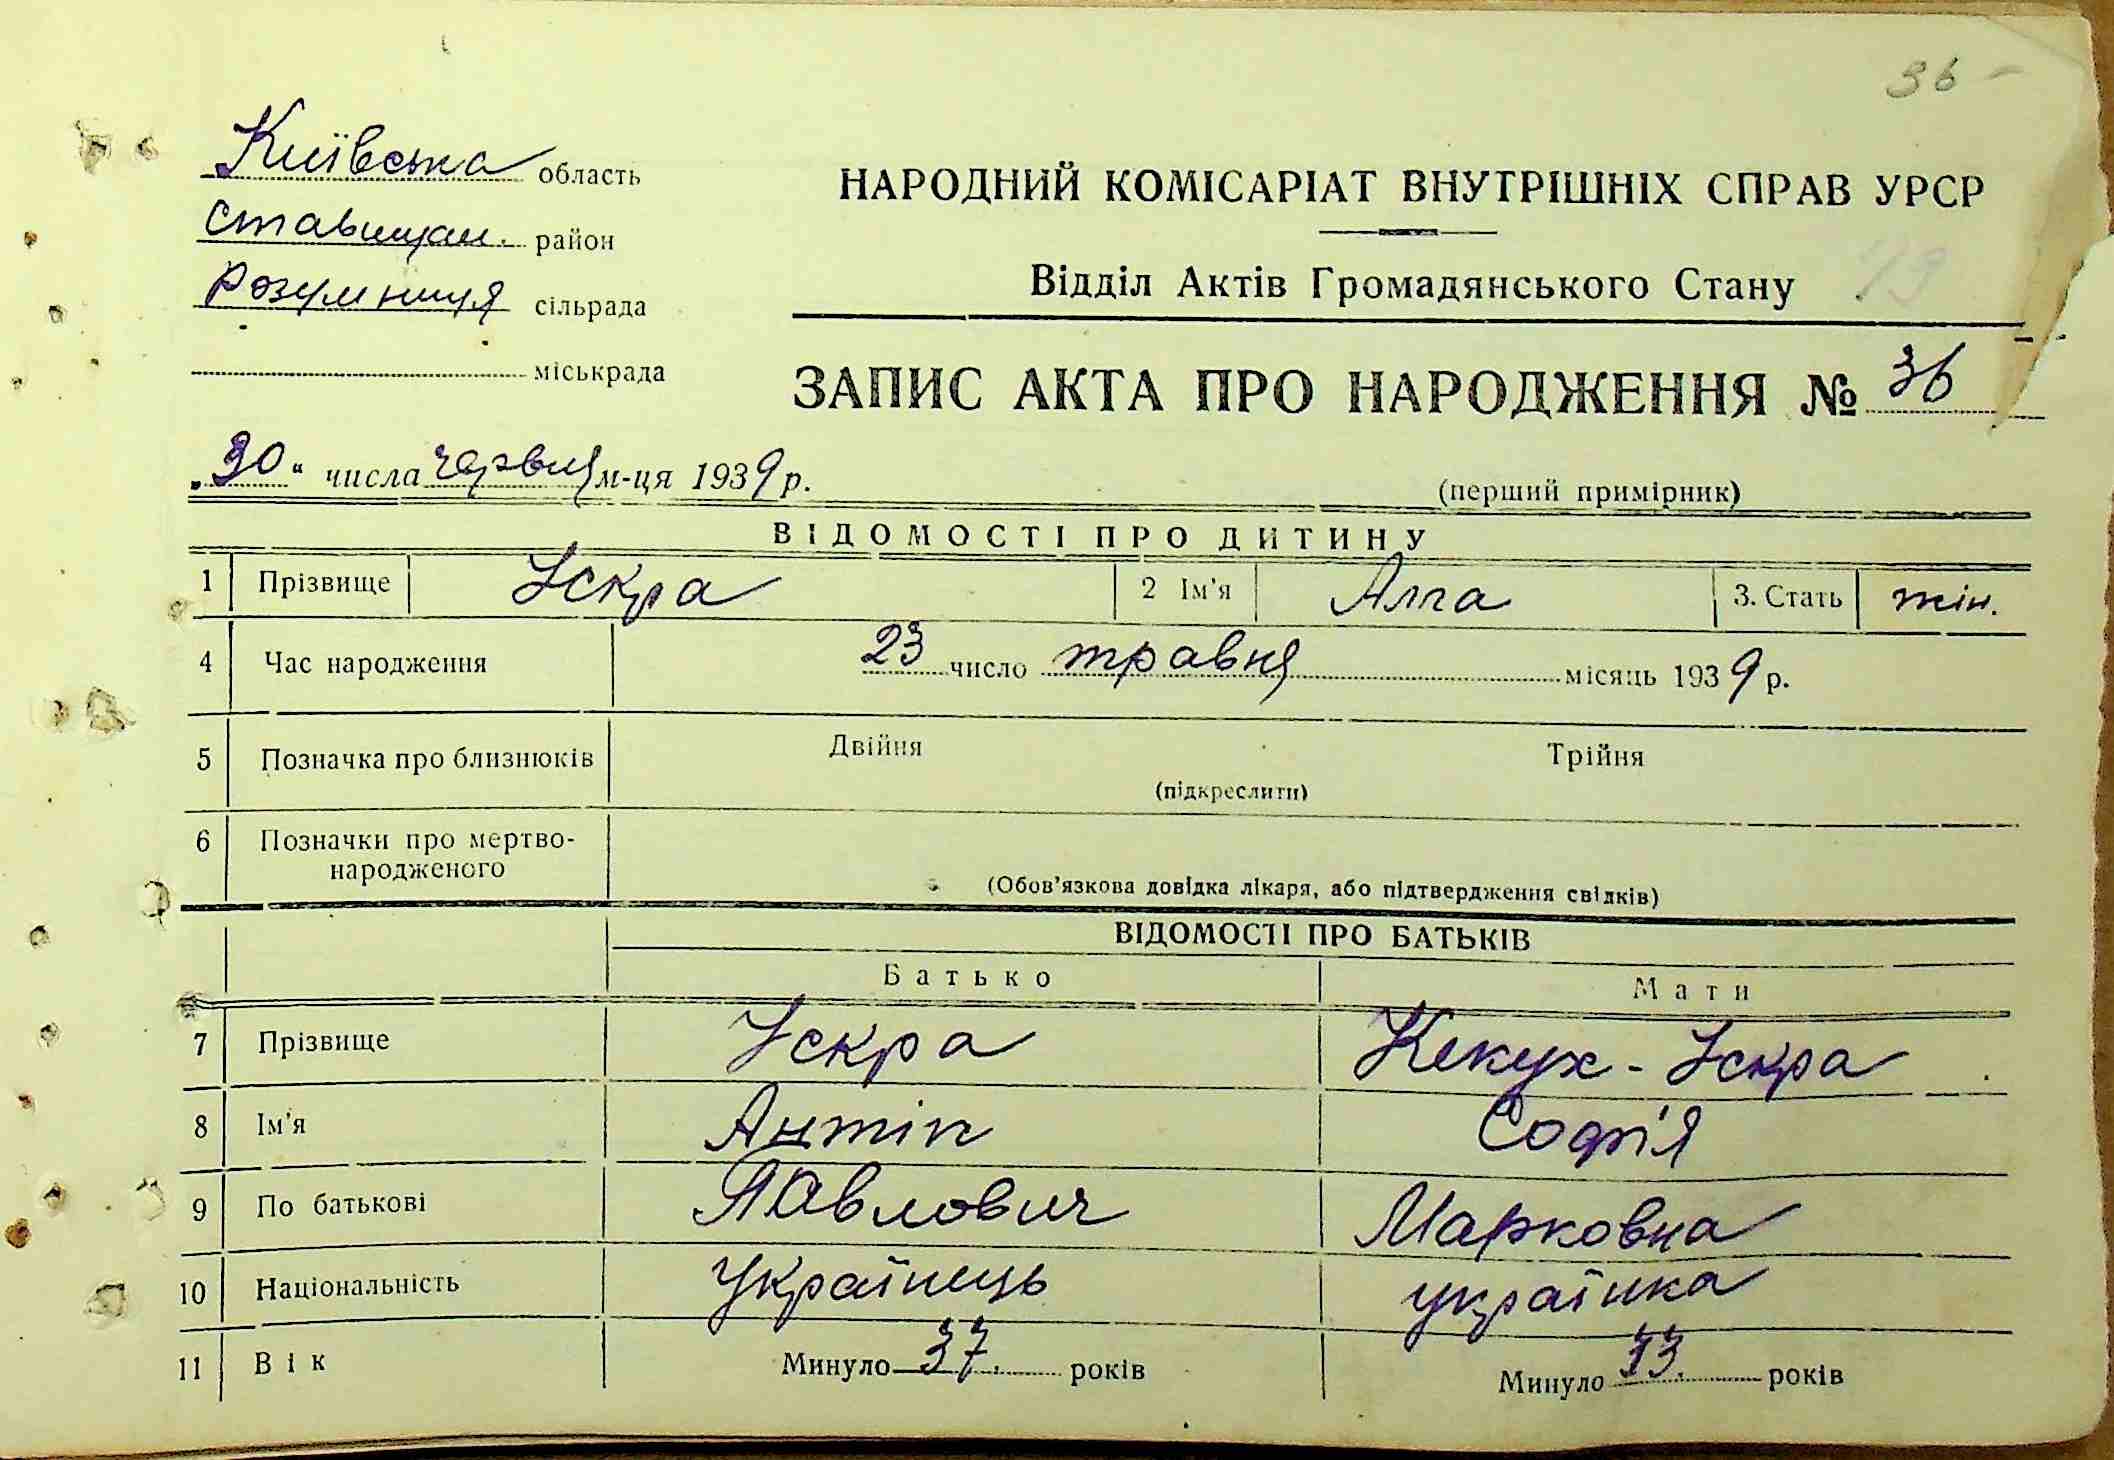 36 -
Київська область
Ставищан. район
Розумниця сільрада
міськрада
НАРОДНИЙ КОМІСАРІАТ ВНУТРІШНІХ СПРАВ УРСР
Відділ Актів Громадянського Стану
ЗАПИС АКТА ПРО НАРОДЖЕННЯ № 36
„30“ числа червня м-ця 1939 р.
(перший примірник)
ВІДОМОСТІ ПРО ДИТИНУ
1 Прізвище Іскра 2 Ім'я Алла 3. Стать жін.
4 Час народження 23 число травня місяць 1939 р.
5 Позначка про близнюків Двійня Трійня
(підкреслити)
6 Позначки про мертво-
народженого
(Обов'язкова довідка лікаря, або підтвердження свідків)
ВІДОМОСТІ ПРО БАТЬКІВ
Батько Мати
7 Прізвище Іскра Кекух - Іскра
8 Ім'я Антіп Софія
9 По батькові Павлович Марковна
10 Національність Українець українка
11 Вік Минуло 37. років Минуло 33. років